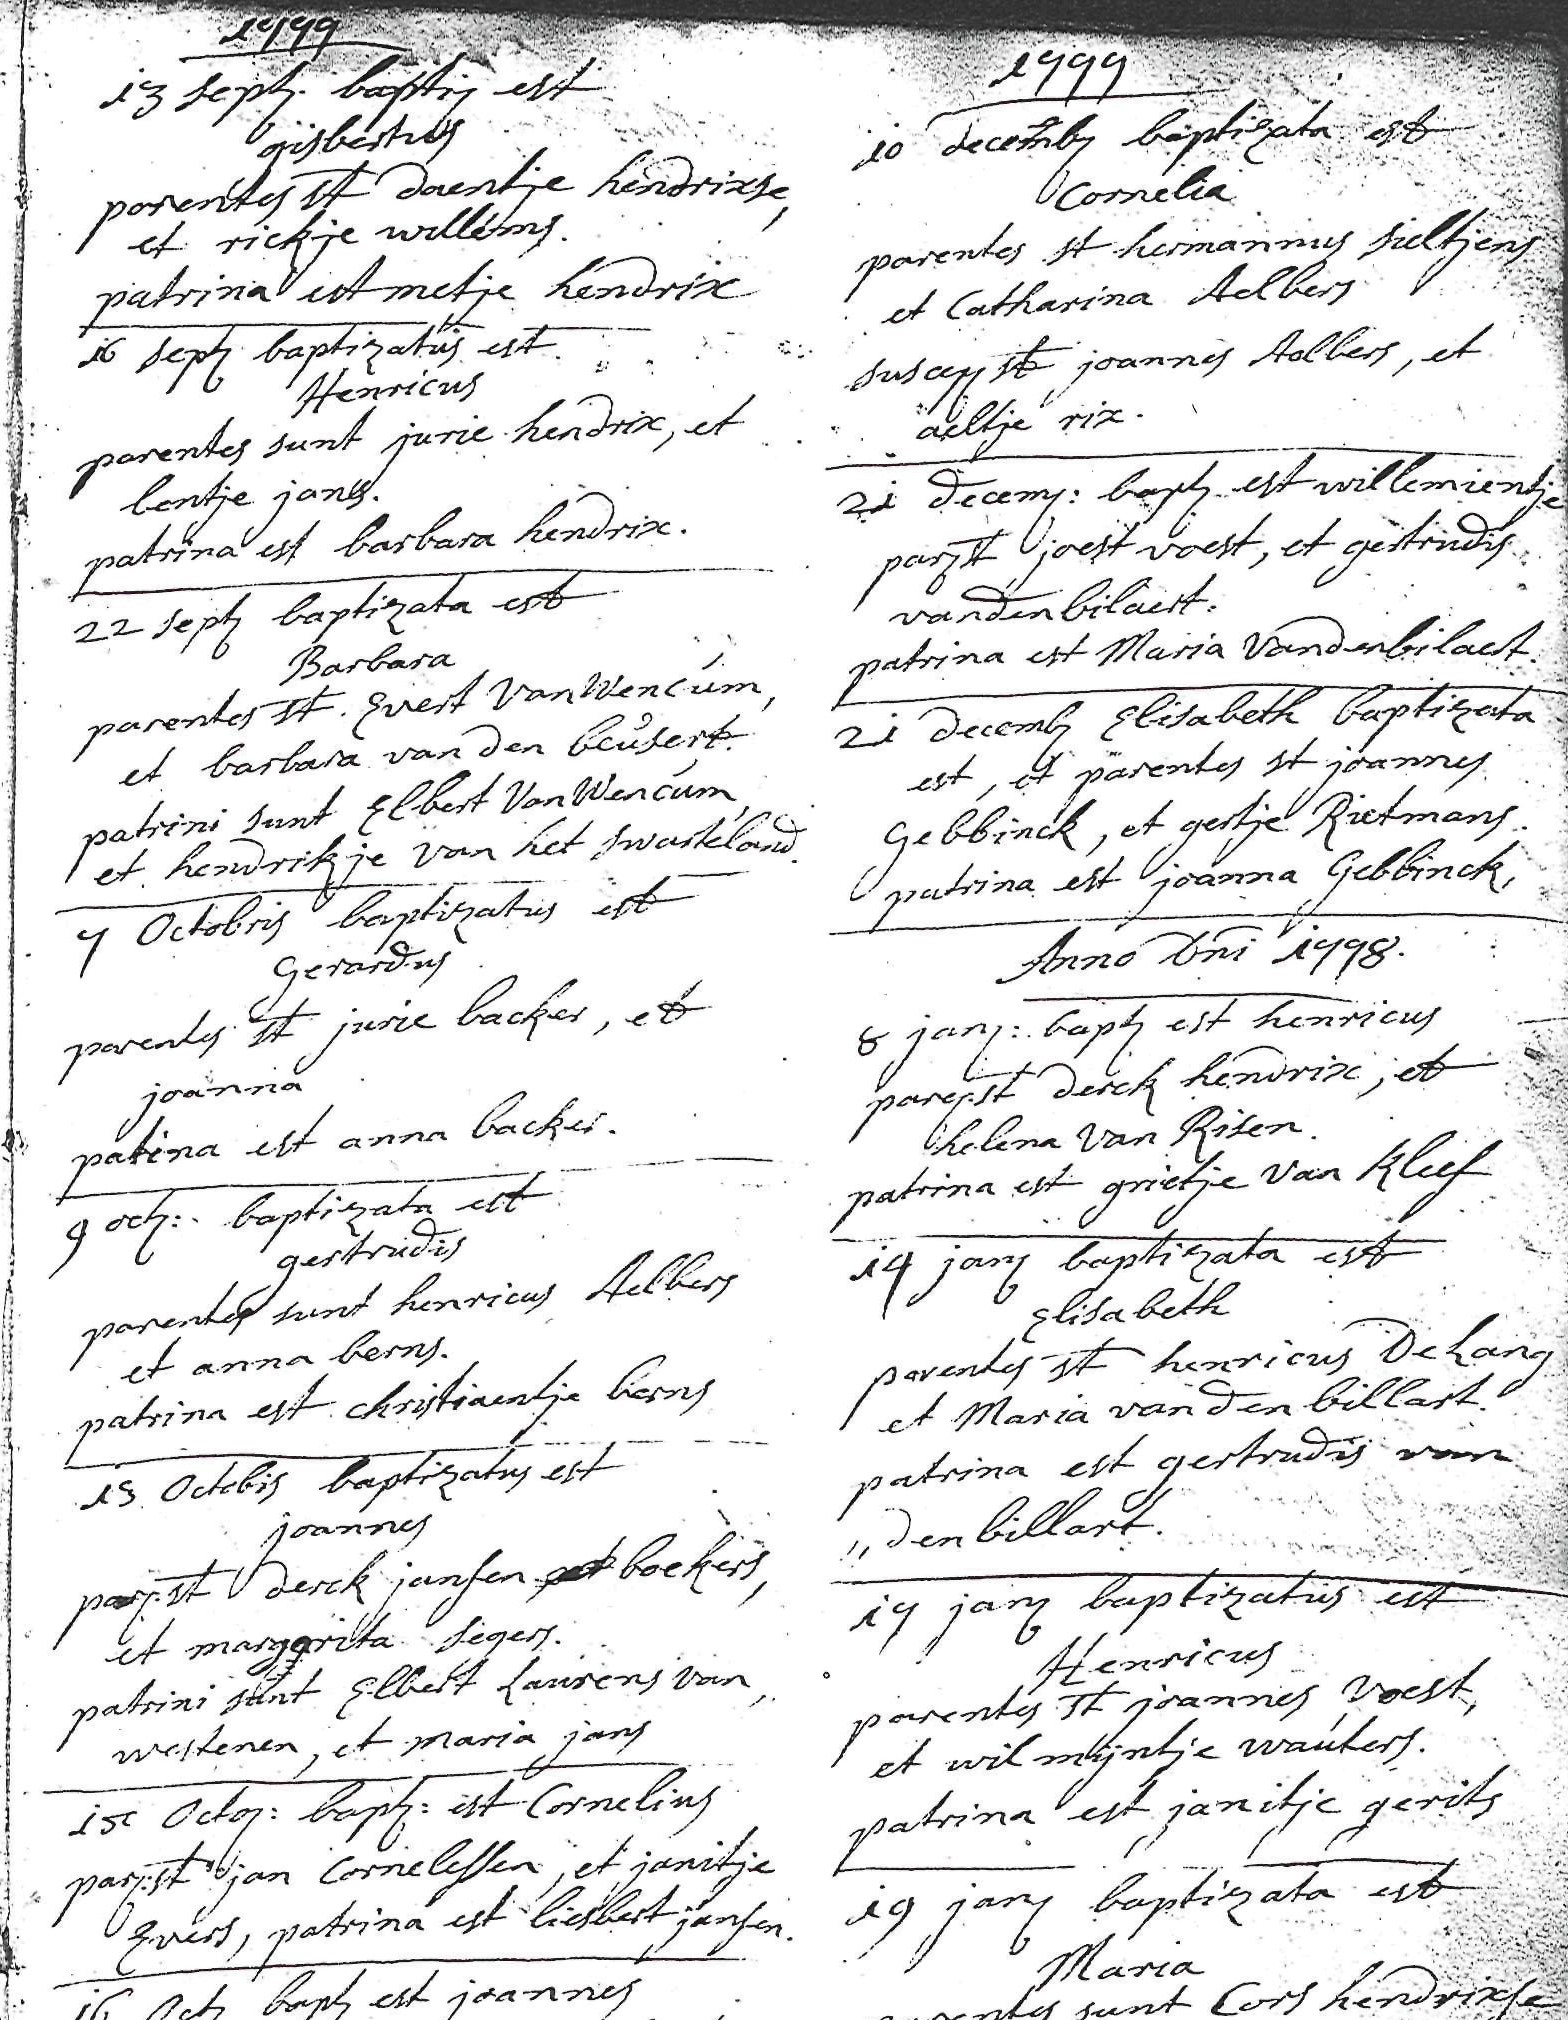 1777
13 sept. baptiz est
gijsbertus
parentes st daentje hendrixse,
et rickje willems.
patrina est metje hendrix
16 sept baptizatus est
Henricus
parentes sunt jurie hendrix, et
lentje jans.
patrina est barbara hendrix.
22 sept baptizata est
Barbara
parentes st. Evert Van Wencúm,
et barbara van den beúsert.
patrini sunt Elbert Van Wencúm,
et hendrikje van het swarteland.
7 Octobris baptizatus est
Gerardus
parentes st jurie backer, et
joanna
patrina est anna backer.
9 oct: baptizata est
gertrudis
parentes sunt henricus Aelbers
et anna berns.
patrina est christiaentje berns
13 Octobris baptizatus est
joannes
par: st derck jansen boekers,
et margarita segers.
patrini sunt Elbert Laurens van
westenen, et maria jans
15 Octo: bapt: est Cornelius
par: st jan Cornelessen, et janitje
Evers, patrina est liesbert jansen.
16 Oct bapt est joannes
1777
10 decemb baptizata est
Cornelia
parentes st hermannus sieltjens
et Catharina Aelbers
suscep st joannes Aelbers, et
aeltje rix.
21 decem: bapt est willemientje
par st joest voest, et gertrudis
vandenbilaert.
patrina est Maria Vandenbilaert.
21 decemb Elisabeth baptizata
est, et parentes st joannes
Gebbinck, et gertje Rietmans.
patrina est joanna Gebbinck,
Anno Dni 1778.
8 jan: bapt est henricus
par: st derck hendrix, et
helena Van Risen.
patrina est grietje Van Kleef
14 jan baptizata est
Elisabeth
parentes st henricus De Lang
et Maria van den billart.
patrina est gertrudis van
,, den billart.
17 jan baptizatus est
Henricus
parentes st joannes Voest,
et wilmijntje waúters.
patrina est janitje gerits
19 jan baptizata est
Maria
parentes sunt Cors hendrixse